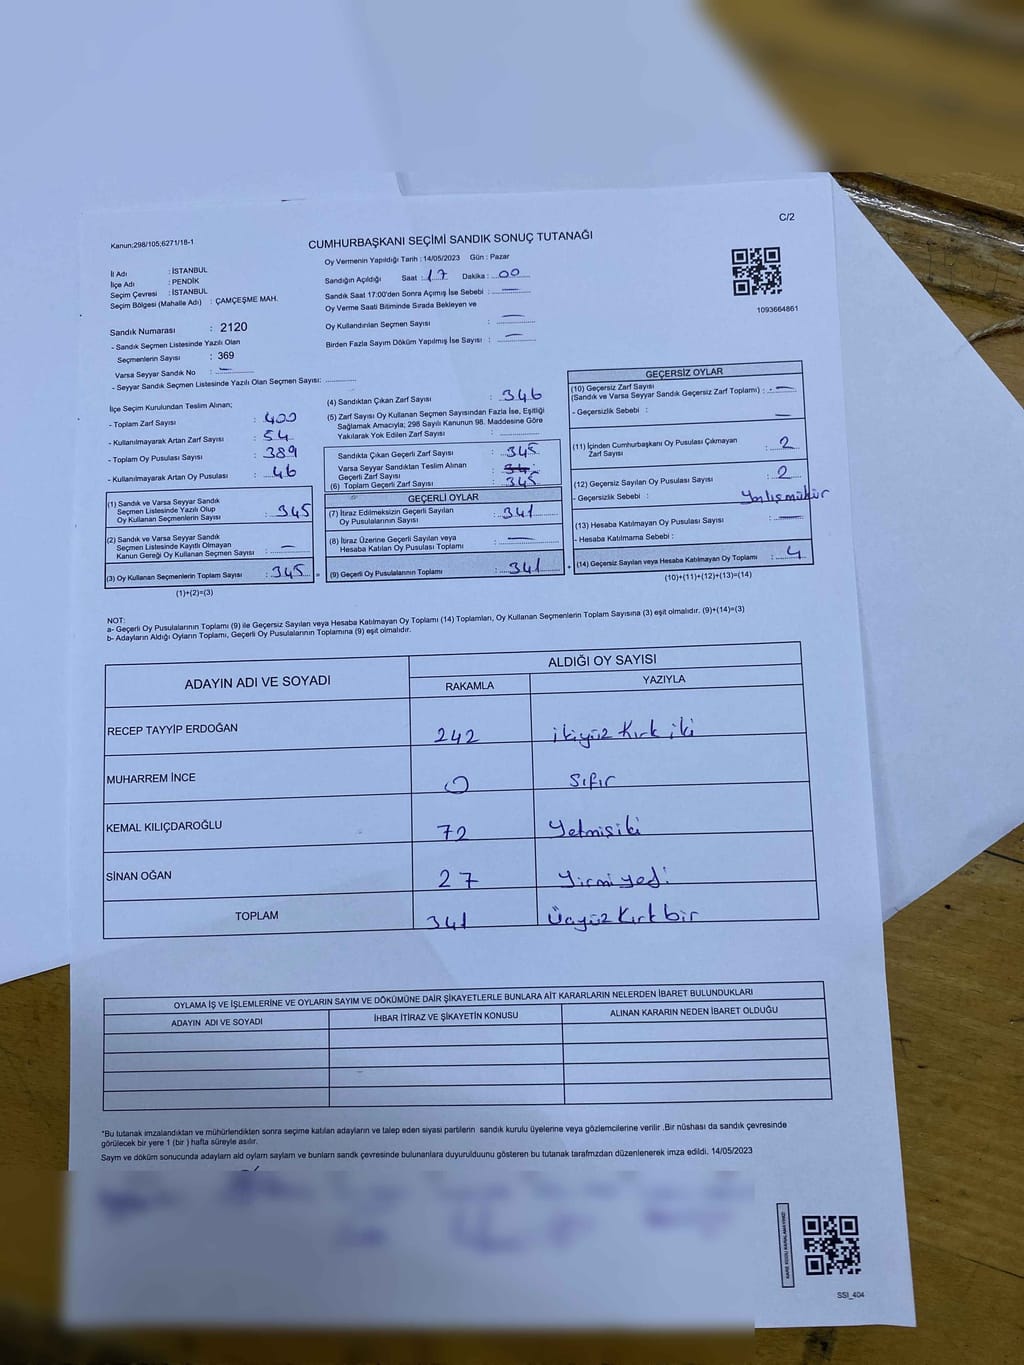 C/2
Kanun:298/105;6271/18-1
CUMHURBAŞKANI SEÇİMİ SANDIK SONUÇ TUTANAĞI
Oy Vermenin Yapıldığı Tarih : 14/05/2023 Gün : Pazar
İl Adı : İSTANBUL
İlçe Adı : PENDİK
Seçim Çevresi : İSTANBUL
Seçim Bölgesi (Mahalle Adı) : ÇAMÇEŞME MAH.
Sandık Numarası : 2120
- Sandık Seçmen Listesinde Yazılı Olan
Seçmenlerin Sayısı : 369
Varsa Seyyar Sandık No : —
- Seyyar Sandık Seçmen Listesinde Yazılı Olan Seçmen Sayısı:
Sandığın Açıldığı Saat : 17 Dakika : 00
Sandık Saat 17:00'den Sonra Açılmış İse Sebebi : —
Oy Verme Saati Bitiminde Sırada Bekleyen ve
Oy Kullandırılan Seçmen Sayısı : —
Birden Fazla Sayım Döküm Yapılmış İse Sayısı : —
1093664861
İlçe Seçim Kurulundan Teslim Alınan;
- Toplam Zarf Sayısı : 400
- Kullanılmayarak Artan Zarf Sayısı : 54
- Toplam Oy Pusulası Sayısı : 389
- Kullanılmayarak Artan Oy Pusulası : 46
(1) Sandık ve Varsa Seyyar Sandık
Seçmen Listesinde Yazılı Olup
Oy Kullanan Seçmenlerin Sayısı : 345
(2) Sandık ve Varsa Seyyar Sandık
Seçmen Listesinde Kayıtlı Olmayan
Kanun Gereği Oy Kullanan Seçmen Sayısı : —
(3) Oy Kullanan Seçmenlerin Toplam Sayısı : 345
(1)+(2)=(3)
(4) Sandıktan Çıkan Zarf Sayısı : 346
(5) Zarf Sayısı Oy Kullanan Seçmen Sayısından Fazla İse, Eşitliği
Sağlamak Amacıyla; 298 Sayılı Kanunun 98. Maddesine Göre
Yakılarak Yok Edilen Zarf Sayısı :
Sandıkta Çıkan Geçerli Zarf Sayısı : 345
Varsa Seyyar Sandıktan Teslim Alınan
Geçerli Zarf Sayısı :
(6) Toplam Geçerli Zarf Sayısı : 345
GEÇERLİ OYLAR
(7) İtiraz Edilmeksizin Geçerli Sayılan
Oy Pusulalarının Sayısı : 341
(8) İtiraz Üzerine Geçerli Sayılan veya
Hesaba Katılan Oy Pusulası Toplamı : —
(9) Geçerli Oy Pusulalarının Toplamı : 341
GEÇERSİZ OYLAR
(10) Geçersiz Zarf Sayısı
(Sandık ve Varsa Seyyar Sandık Geçersiz Zarf Toplamı) : —
- Geçersizlik Sebebi : —
(11) İçinden Cumhurbaşkanı Oy Pusulası Çıkmayan
Zarf Sayısı : 2
(12) Geçersiz Sayılan Oy Pusulası Sayısı : 2
- Geçersizlik Sebebi : Yanlış mühür
(13) Hesaba Katılmayan Oy Pusulası Sayısı : —
- Hesaba Katılmama Sebebi :
(14) Geçersiz Sayılan veya Hesaba Katılmayan Oy Toplamı : 4
(10)+(11)+(12)+(13)=(14)
NOT:
a- Geçerli Oy Pusulalarının Toplamı (9) ile Geçersiz Sayılan veya Hesaba Katılmayan Oy Toplamı (14) Toplamları, Oy Kullanan Seçmenlerin Toplam Sayısına (3) eşit olmalıdır. (9)+(14)=(3)
b- Adayların Aldığı Oyların Toplamı, Geçerli Oy Pusulalarının Toplamına (9) eşit olmalıdır.
ADAYIN ADI VE SOYADI ALDIĞI OY SAYISI
RAKAMLA YAZIYLA
RECEP TAYYİP ERDOĞAN 242 ikiyüz Kırk iki
MUHARREM İNCE 0 Sıfır
KEMAL KILIÇDAROĞLU 72 Yetmişiki
SİNAN OĞAN 27 Yirmiyedi
TOPLAM 341 Üçyüz Kırk bir
OYLAMA İŞ VE İŞLEMLERİNE VE OYLARIN SAYIM VE DÖKÜMÜNE DAİR ŞİKAYETLERLE BUNLARA AİT KARARLARIN NELERDEN İBARET BULUNDUKLARI
ADAYIN ADI VE SOYADI İHBAR İTİRAZ VE ŞİKAYETİN KONUSU ALINAN KARARIN NEDEN İBARET OLDUĞU
*Bu tutanak imzalandıktan ve mühürlendikten sonra seçime katılan adayların ve talep eden siyasi partilerin sandık kurulu üyelerine veya gözlemcilerine verilir .Bir nüshası da sandık çevresinde
görülecek bir yere 1 (bir ) hafta süreyle asılır.
Sayım ve döküm sonucunda adayların aldı oyların sayların ve bunların sandk çevresinde bulunanlara duyurulduunu gösteren bu tutanak tarafmzdan düzenlenerek imza edildi. 14/05/2023
SSI_404